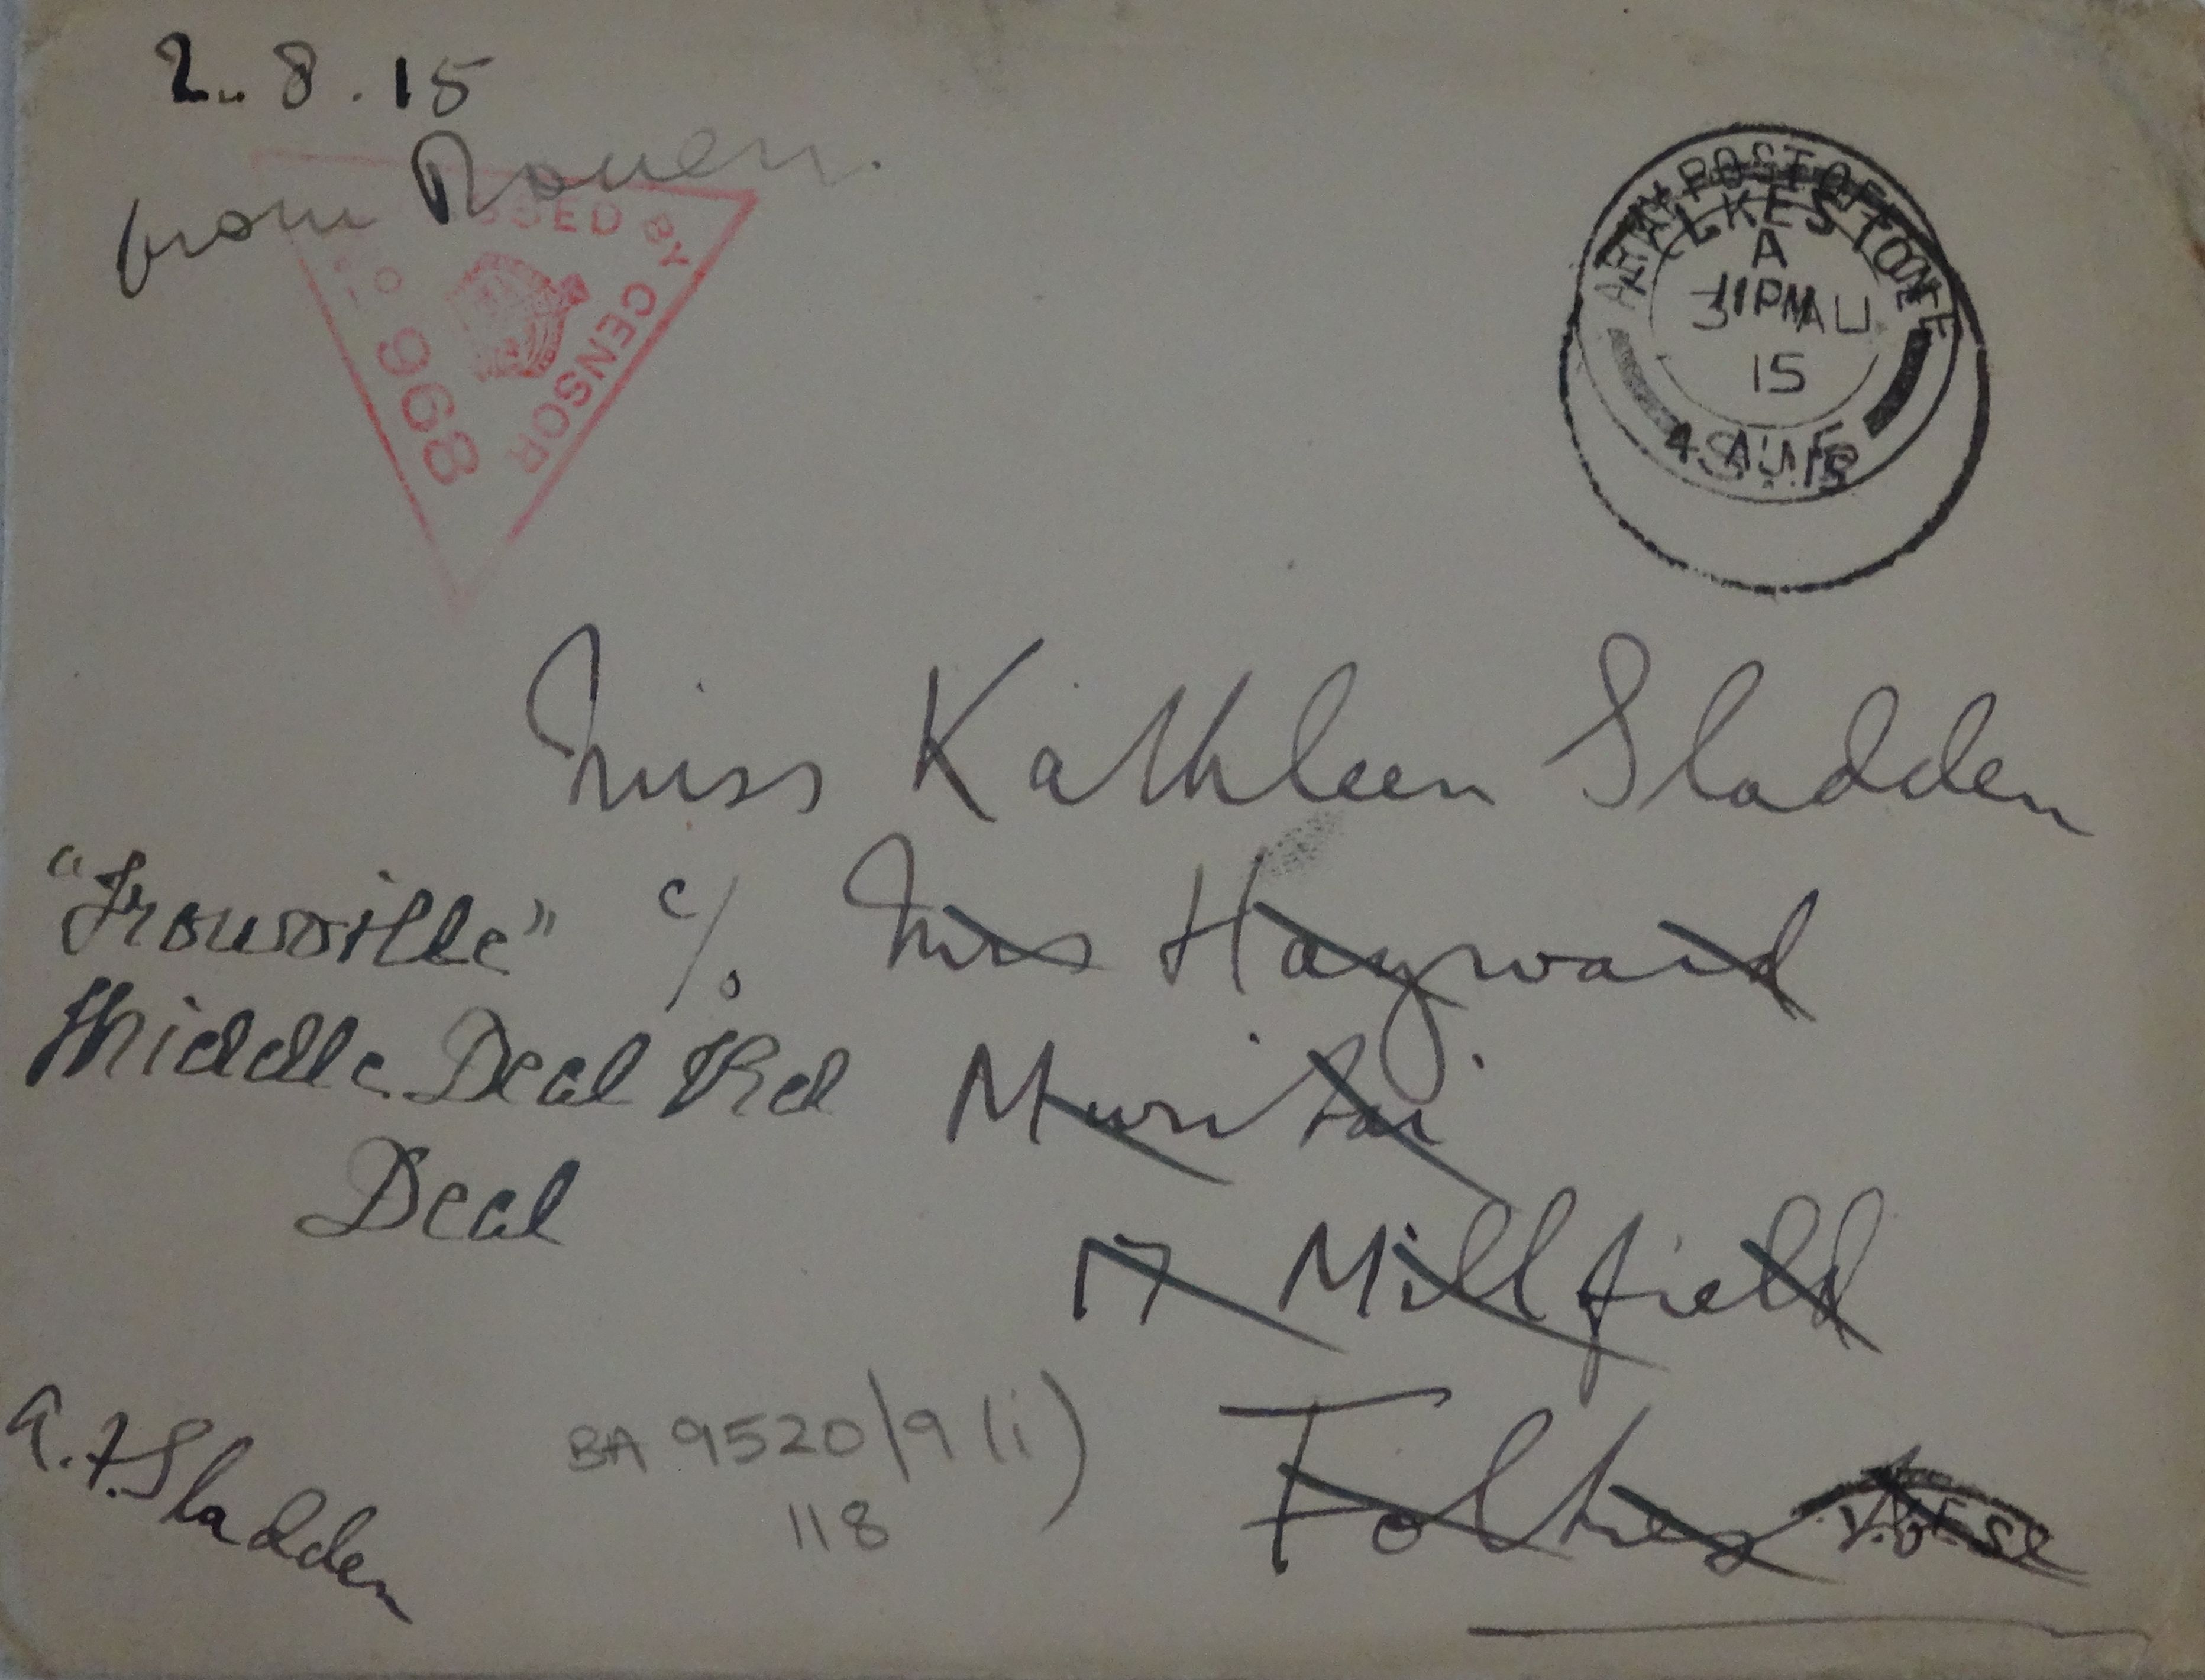 2. 8. 15
from Rouen.
PASSED BY CENSOR
No 968
ARMY POST OFFICE
FOLKESTONE
A
15
Miss Kathleen Sladden
"Trouville" c/o Mrs Hayward
Middle Deal Rd Muritai
Deal
17 Millfield
A.F. Sladden
BA 9520/9 (i)
118
Folkes